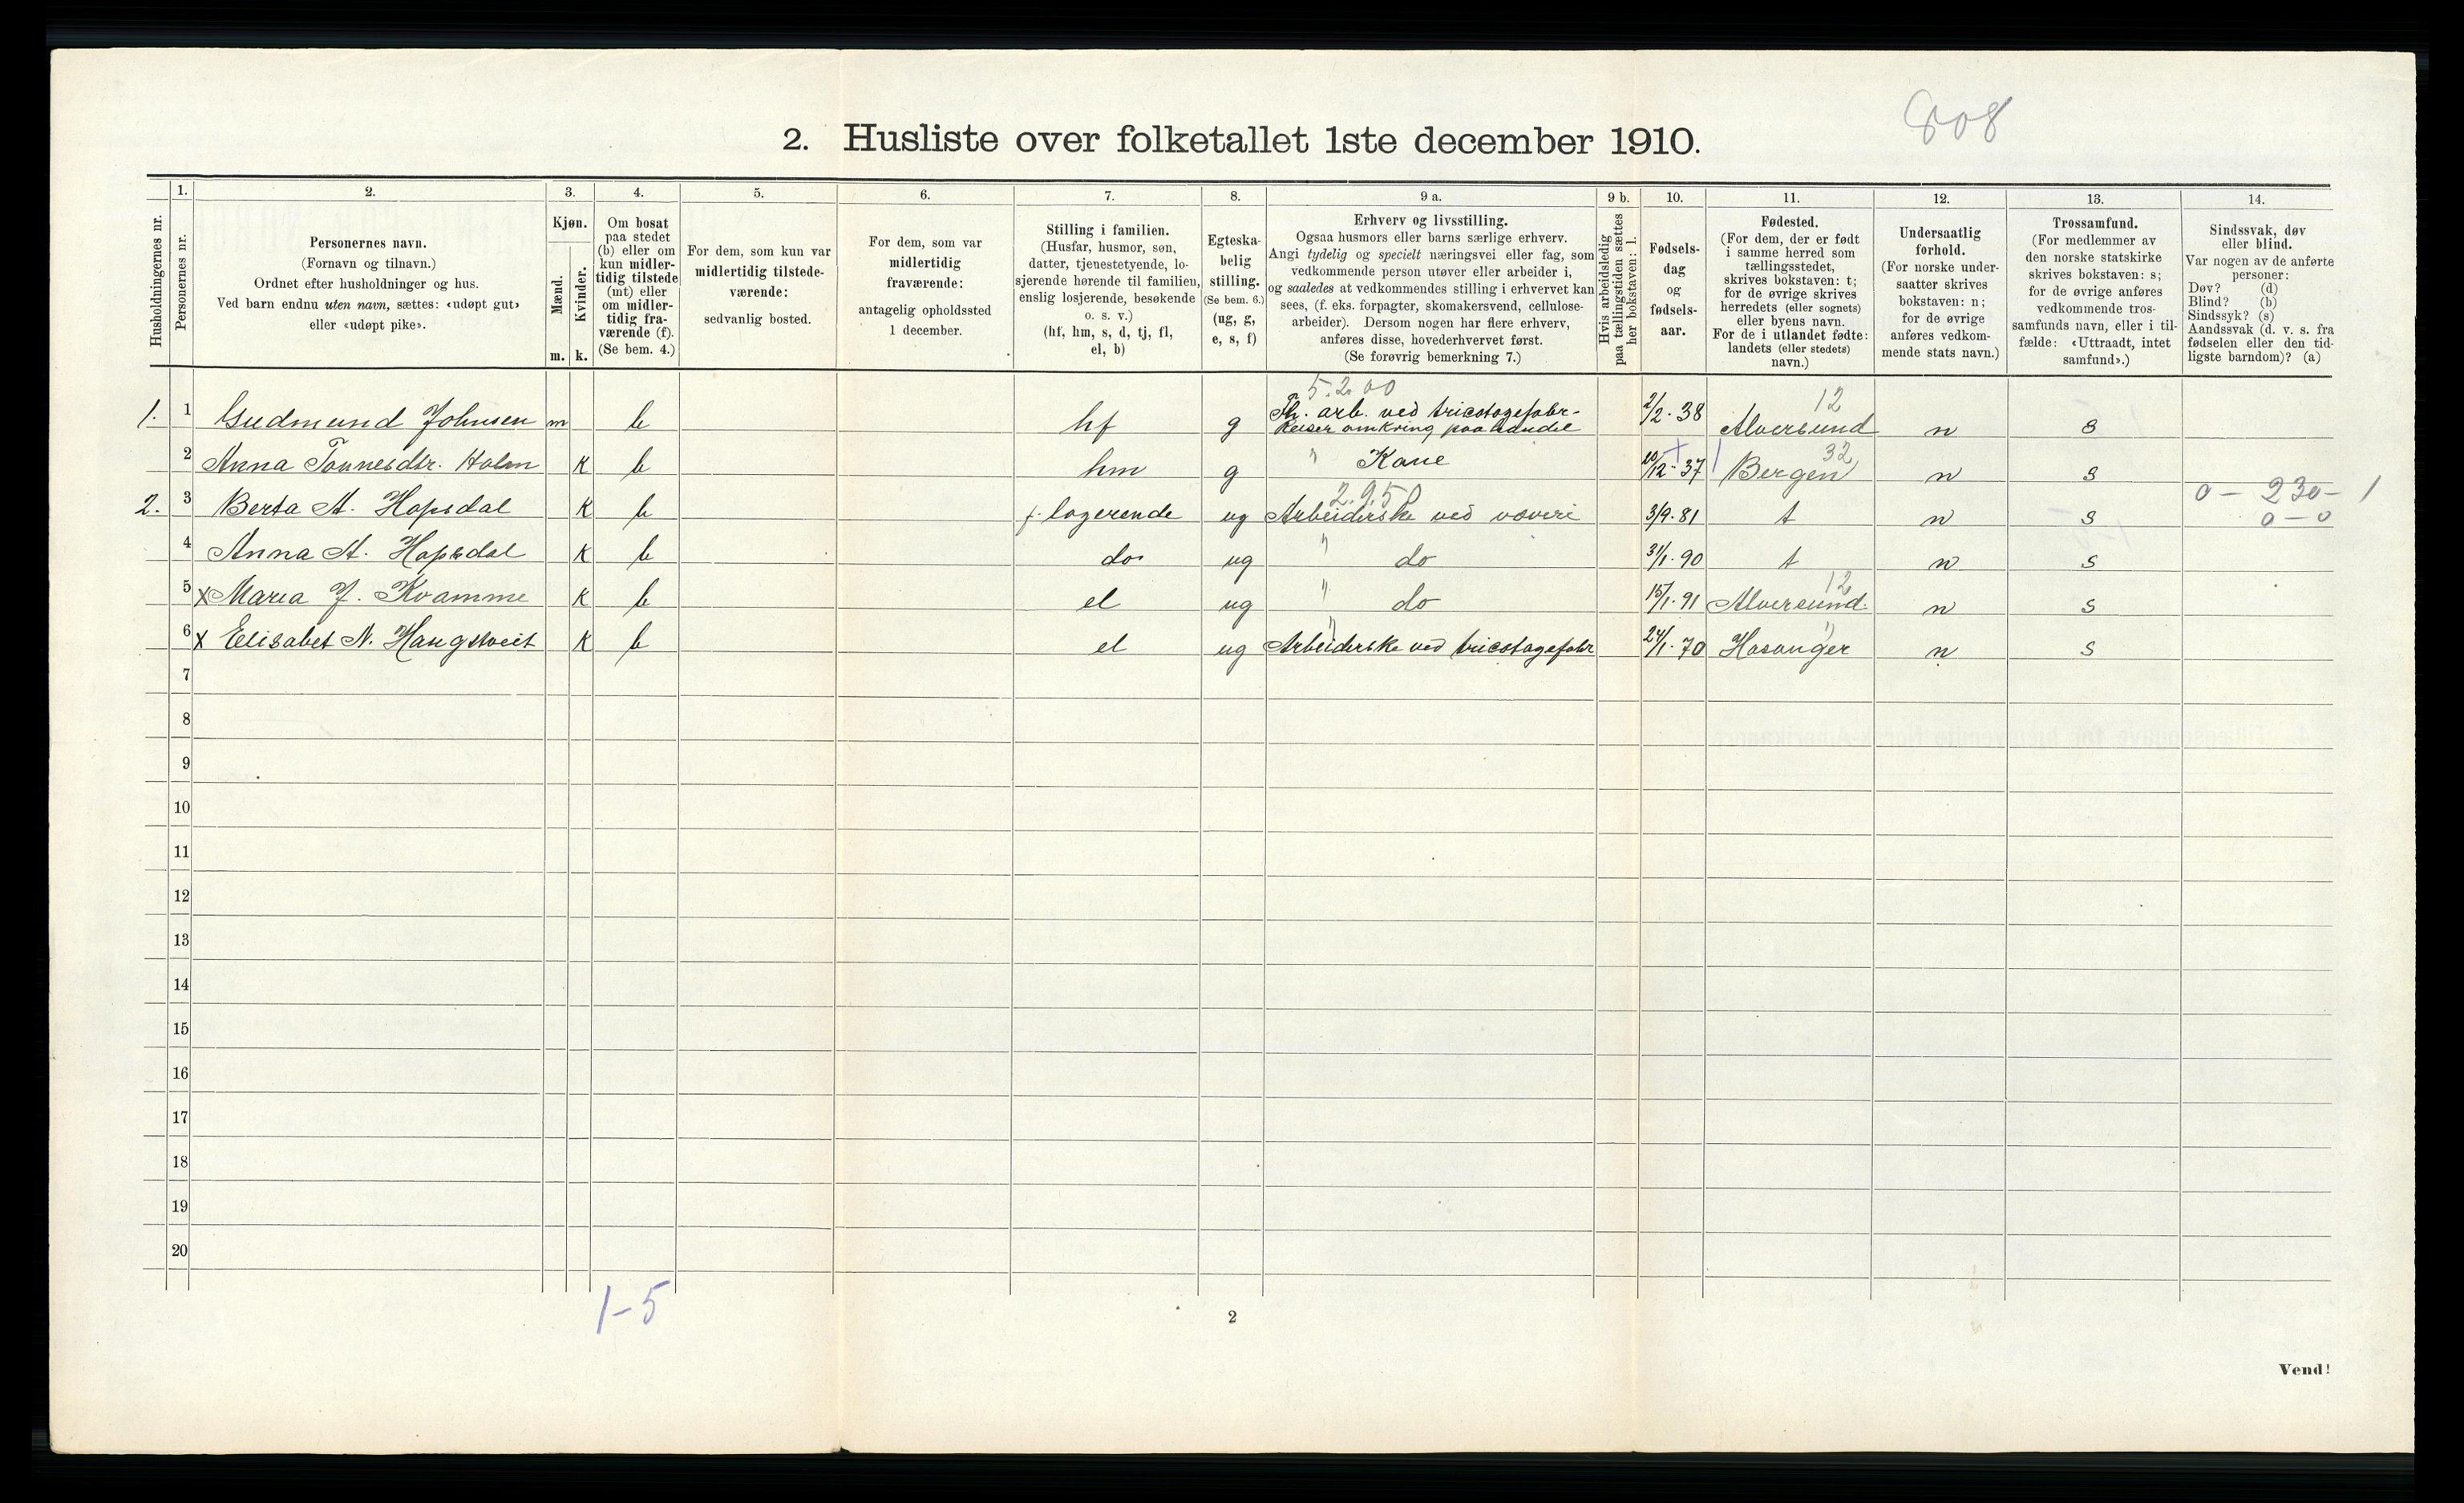 808
2. Husliste over folketallet 1ste december 1910.
Husholdningernes nr.
1.
Personernes nr.
2.
Personernes navn.
(Fornavn og tilnavn.)
Ordnet efter husholdninger og hus.
Ved barn endnu uten navn, sættes: «udøpt gut»
eller «udøpt pike».
3.
Kjøn.
Mænd.
Kvinder.
m. k.
4.
Om bosat
paa stedet
(b) eller om
kun midler-
tidig tilstede
(mt) eller
om midler-
tidig fra-
værende (f).
(Se bem. 4.)
5.
For dem, som kun var
midlertidig tilstede-
værende:
sedvanlig bosted.
6.
For dem, som var
midlertidig
fraværende:
antagelig opholdssted
1 december.
7.
Stilling i familien.
(Husfar, husmor, søn,
datter, tjenestetyende, lo-
sjerende hørende til familien,
enslig losjerende, besøkende
o. s. v.)
(hf, hm, s, d, tj, fl,
el, b)
8.
Egteska-
belig
stilling.
(Se bem. 6.)
(ug, g,
e, s, f)
9 a.
Erhverv og livsstilling.
Ogsaa husmors eller barns særlige erhverv.
Angi tydelig og specielt næringsvei eller fag, som
vedkommende person utøver eller arbeider i,
og saaledes at vedkommendes stilling i erhvervet kan
sees, (f. eks. forpagter, skomakersvend, cellulose-
arbeider). Dersom nogen har flere erhverv,
anføres disse, hovederhvervet først.
(Se forøvrig bemerkning 7.)
9 b.
Hvis arbeidsledig
paa tællingstiden sættes
her bokstaven: l.
10.
Fødsels-
dag
og
fødsels-
aar.
11.
Fødested.
(For dem, der er født
i samme herred som
tællingsstedet,
skrives bokstaven: t;
for de øvrige skrives
herredets (eller sognets)
eller byens navn.
For de i utlandet fødte:
landets (eller stedets)
navn.)
12.
Undersaatlig
forhold.
(For norske under-
saatter skrives
bokstaven: n;
for de øvrige
anføres vedkom-
mende stats navn.)
13.
Trossamfund.
(For medlemmer av
den norske statskirke
skrives bokstaven: s;
for de øvrige anføres
vedkommende tros-
samfunds navn, eller i til-
fælde: «Uttraadt, intet
samfund».)
14.
Sindssvak, døv
eller blind.
Var nogen av de anførte
personer:
Døv? (d)
Blind? (b)
Sindssyk? (s)
Aandssvak (d. v. s. fra
fødselen eller den tid-
ligste barndom)? (a)
5.2.00
12
1. 1 Gudmund Johnsen m b hf g Fh. arb. ved tricotagefabr- 2/2-38 Alversund n s
Reiser omkring paa handel
32
2 Anna Tonnesdtr. Holm K b hm g " Kone 20/12-37 Bergen n s
2.9.50
0 - 230 - 1
2. 3 Berta A. Hopsdal K b f. logerende ug Arbeiderske ved væveri 3/9-81 t n s
0 - 0
4 Anna A. Hopsdal K b do ug " do 31/1-90 t n s
12
5 x Maria J. Kvamme K b el ug " do 15/1-91 Alversund n s
6 x Elisabet N. Haugstveit K b el ug Arbeiderske ved tricotagefabr 24/1-70 Hosanger n s
7
8
9
10
11
12
13
14
15
16
17
18
19
20
1-5
2
Vend!